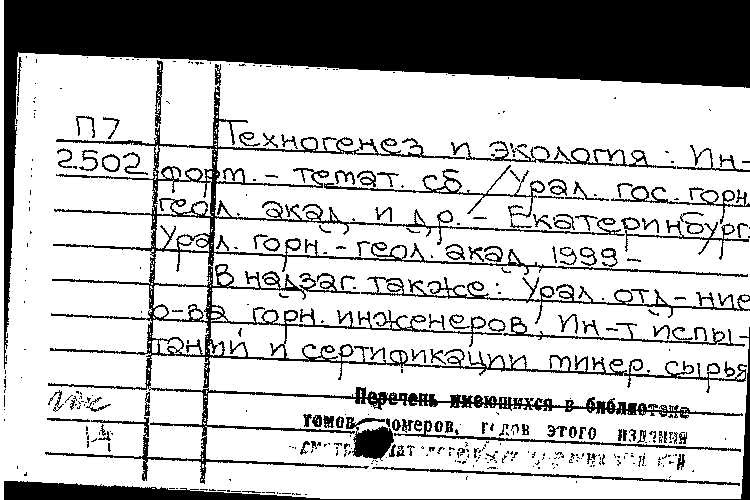 П7 Техногенез и экология : Ин-
2502 форм. - темат. сб. / Урал. гос. горн.
геол. акад. и др. - Екатеринбург:
Урал. горн. - геол. акад., 1999 -
В надзаг. также: Урал. отд-ние
о-ва горн. инженеров, Ин-т испы-
таний и сертификации минер. сырья
Перечень имеющихся в библиотеке
томов, номеров, годов этого издания
14